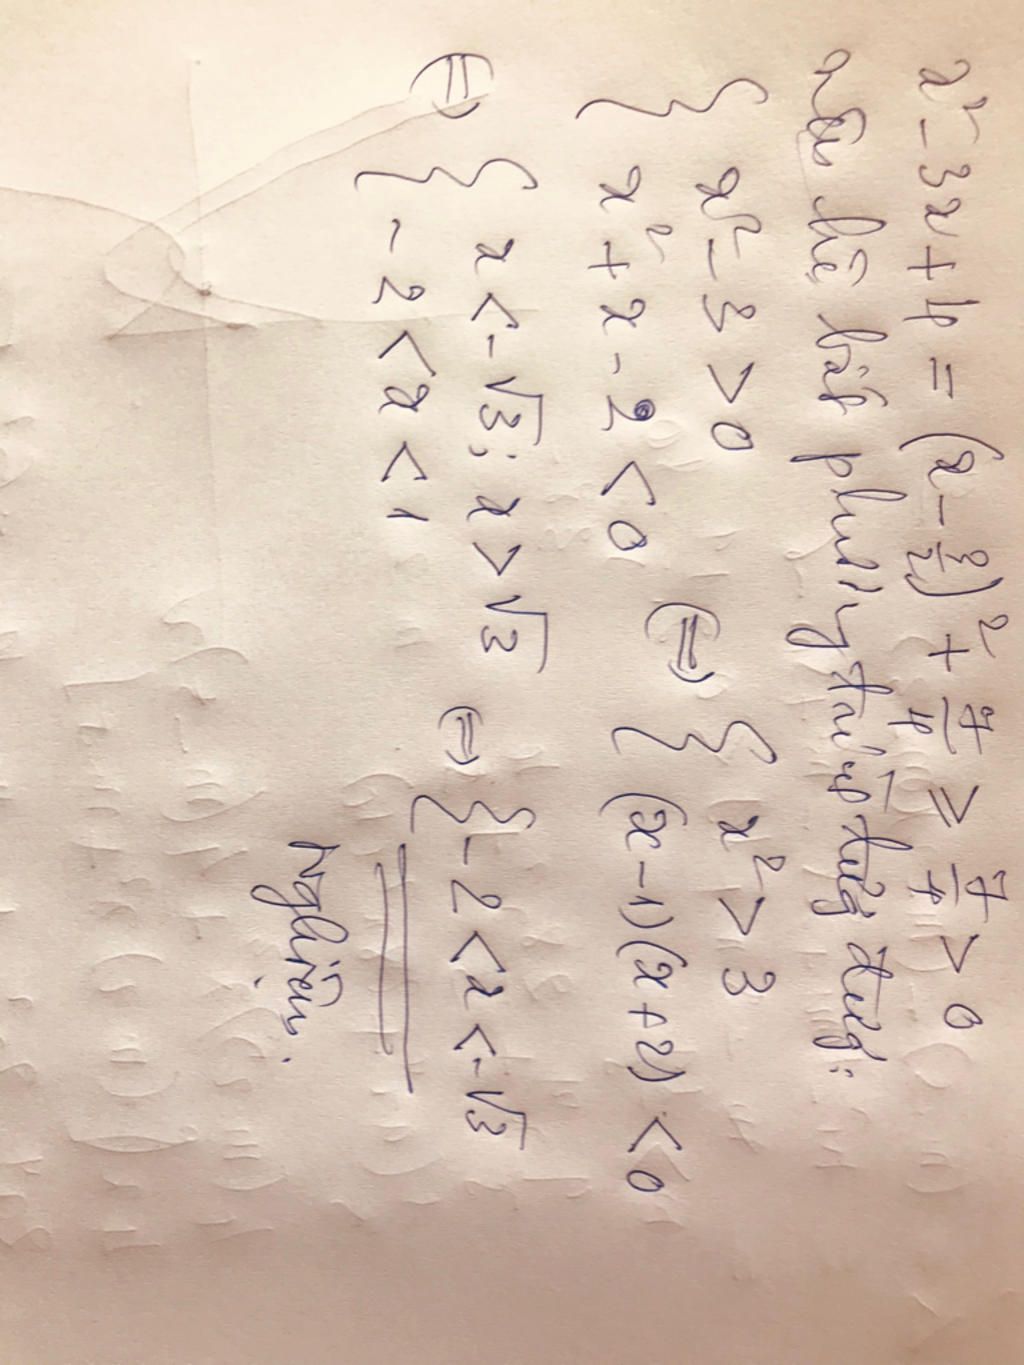 x² - 3x + 4 = (x - 3/2)² + 7/4 ≥ 7/4 > 0
nên hệ bất phương trình tương đương:
{ x² - 3 > 0
x² + x - 2 < 0
⇔ { x² > 3
(x - 1)(x + 2) < 0
⇔ { x < -√3; x > √3
-2 < x < 1
⇔ { -2 < x < -√3
Nghiệm.